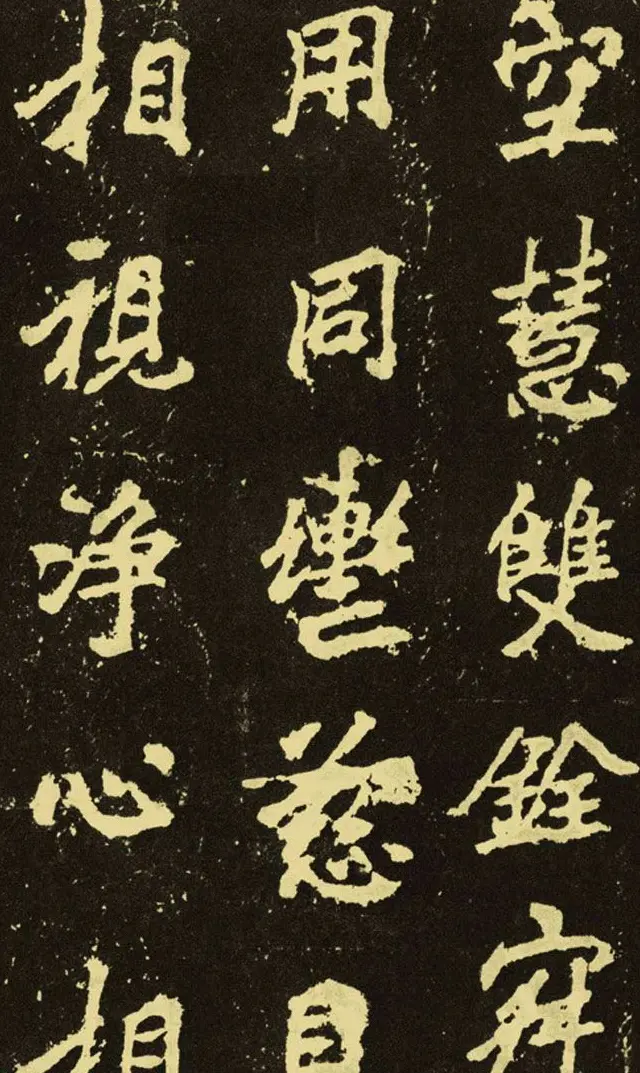 空慧雙銓寂
用同轡慈目
相視净心相